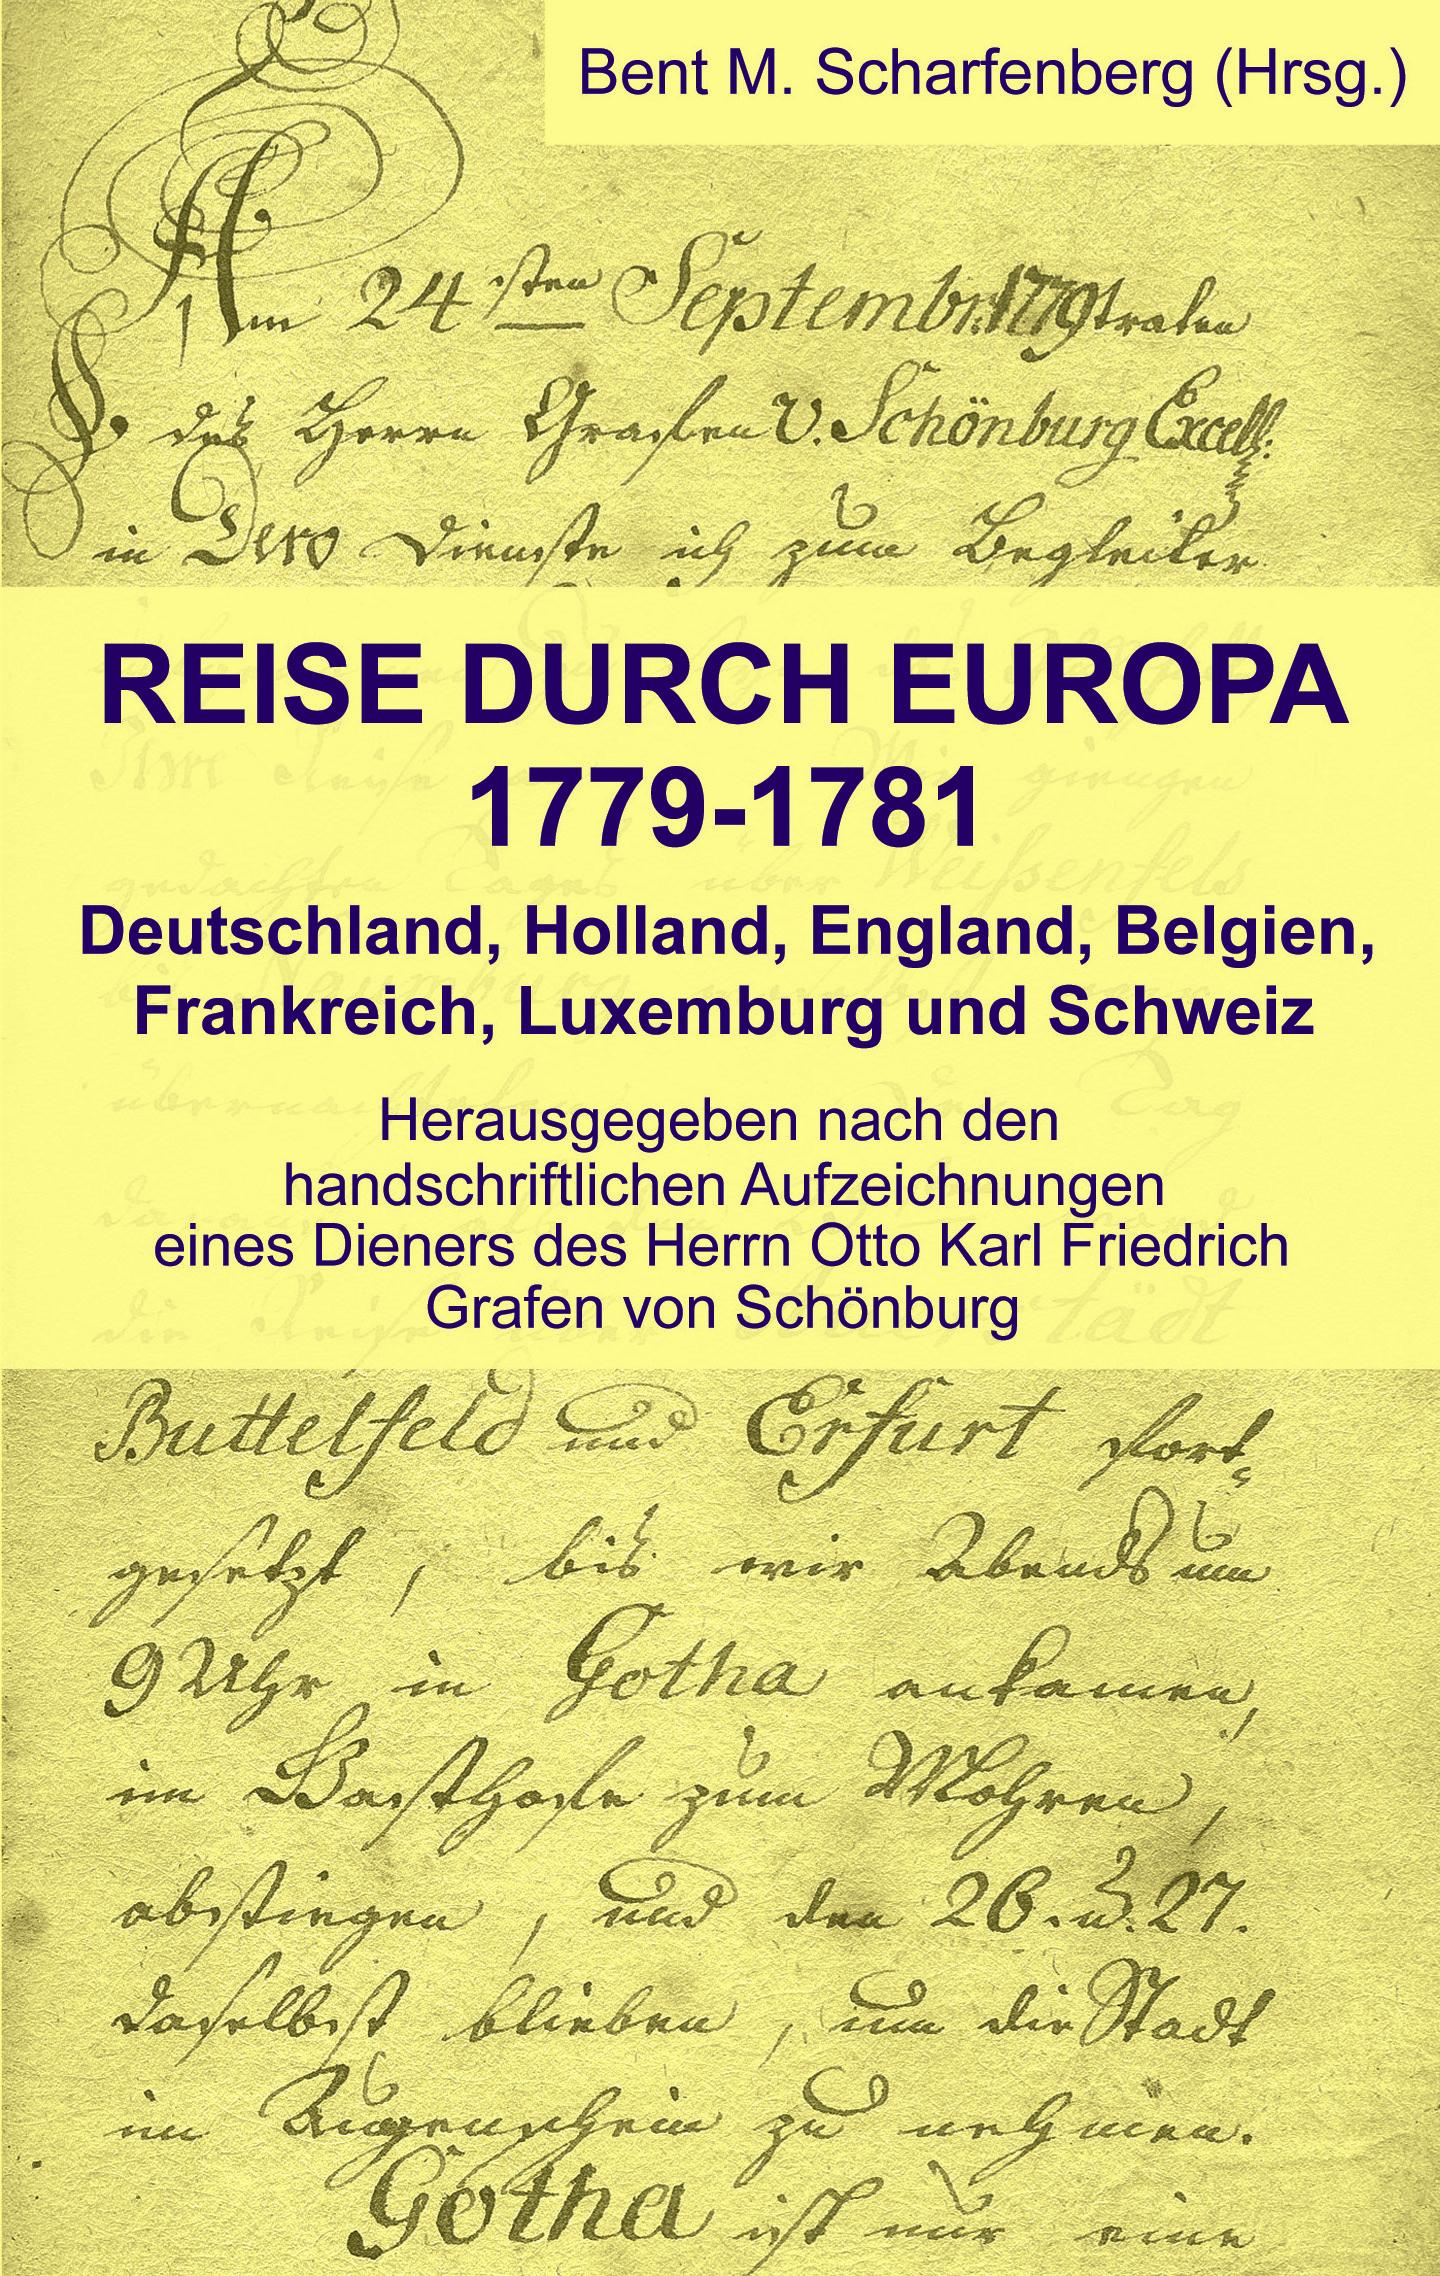 Bent M. Scharfenberg (Hrsg.)
Am 24sten Septembr: 1779 traten
des Herrn Grafen v. Schönburg Excell:
in Dero Dienste ich zum Begleiter
REISE DURCH EUROPA
1779-1781
Deutschland, Holland, England, Belgien,
Frankreich, Luxemburg und Schweiz
Herausgegeben nach den
handschriftlichen Aufzeichnungen
eines Dieners des Herrn Otto Karl Friedrich
Grafen von Schönburg
Buttelfeld und Erfurt fort-
gesetzt, bis wir Abends um
9 Uhr in Gotha ankamen,
im Gasthofe zum Mohren,
abstiegen, und den 26. u. 27.
daselbst blieben, um die Stadt
im Augenschein zu nehmen.
Gotha ist nur eine